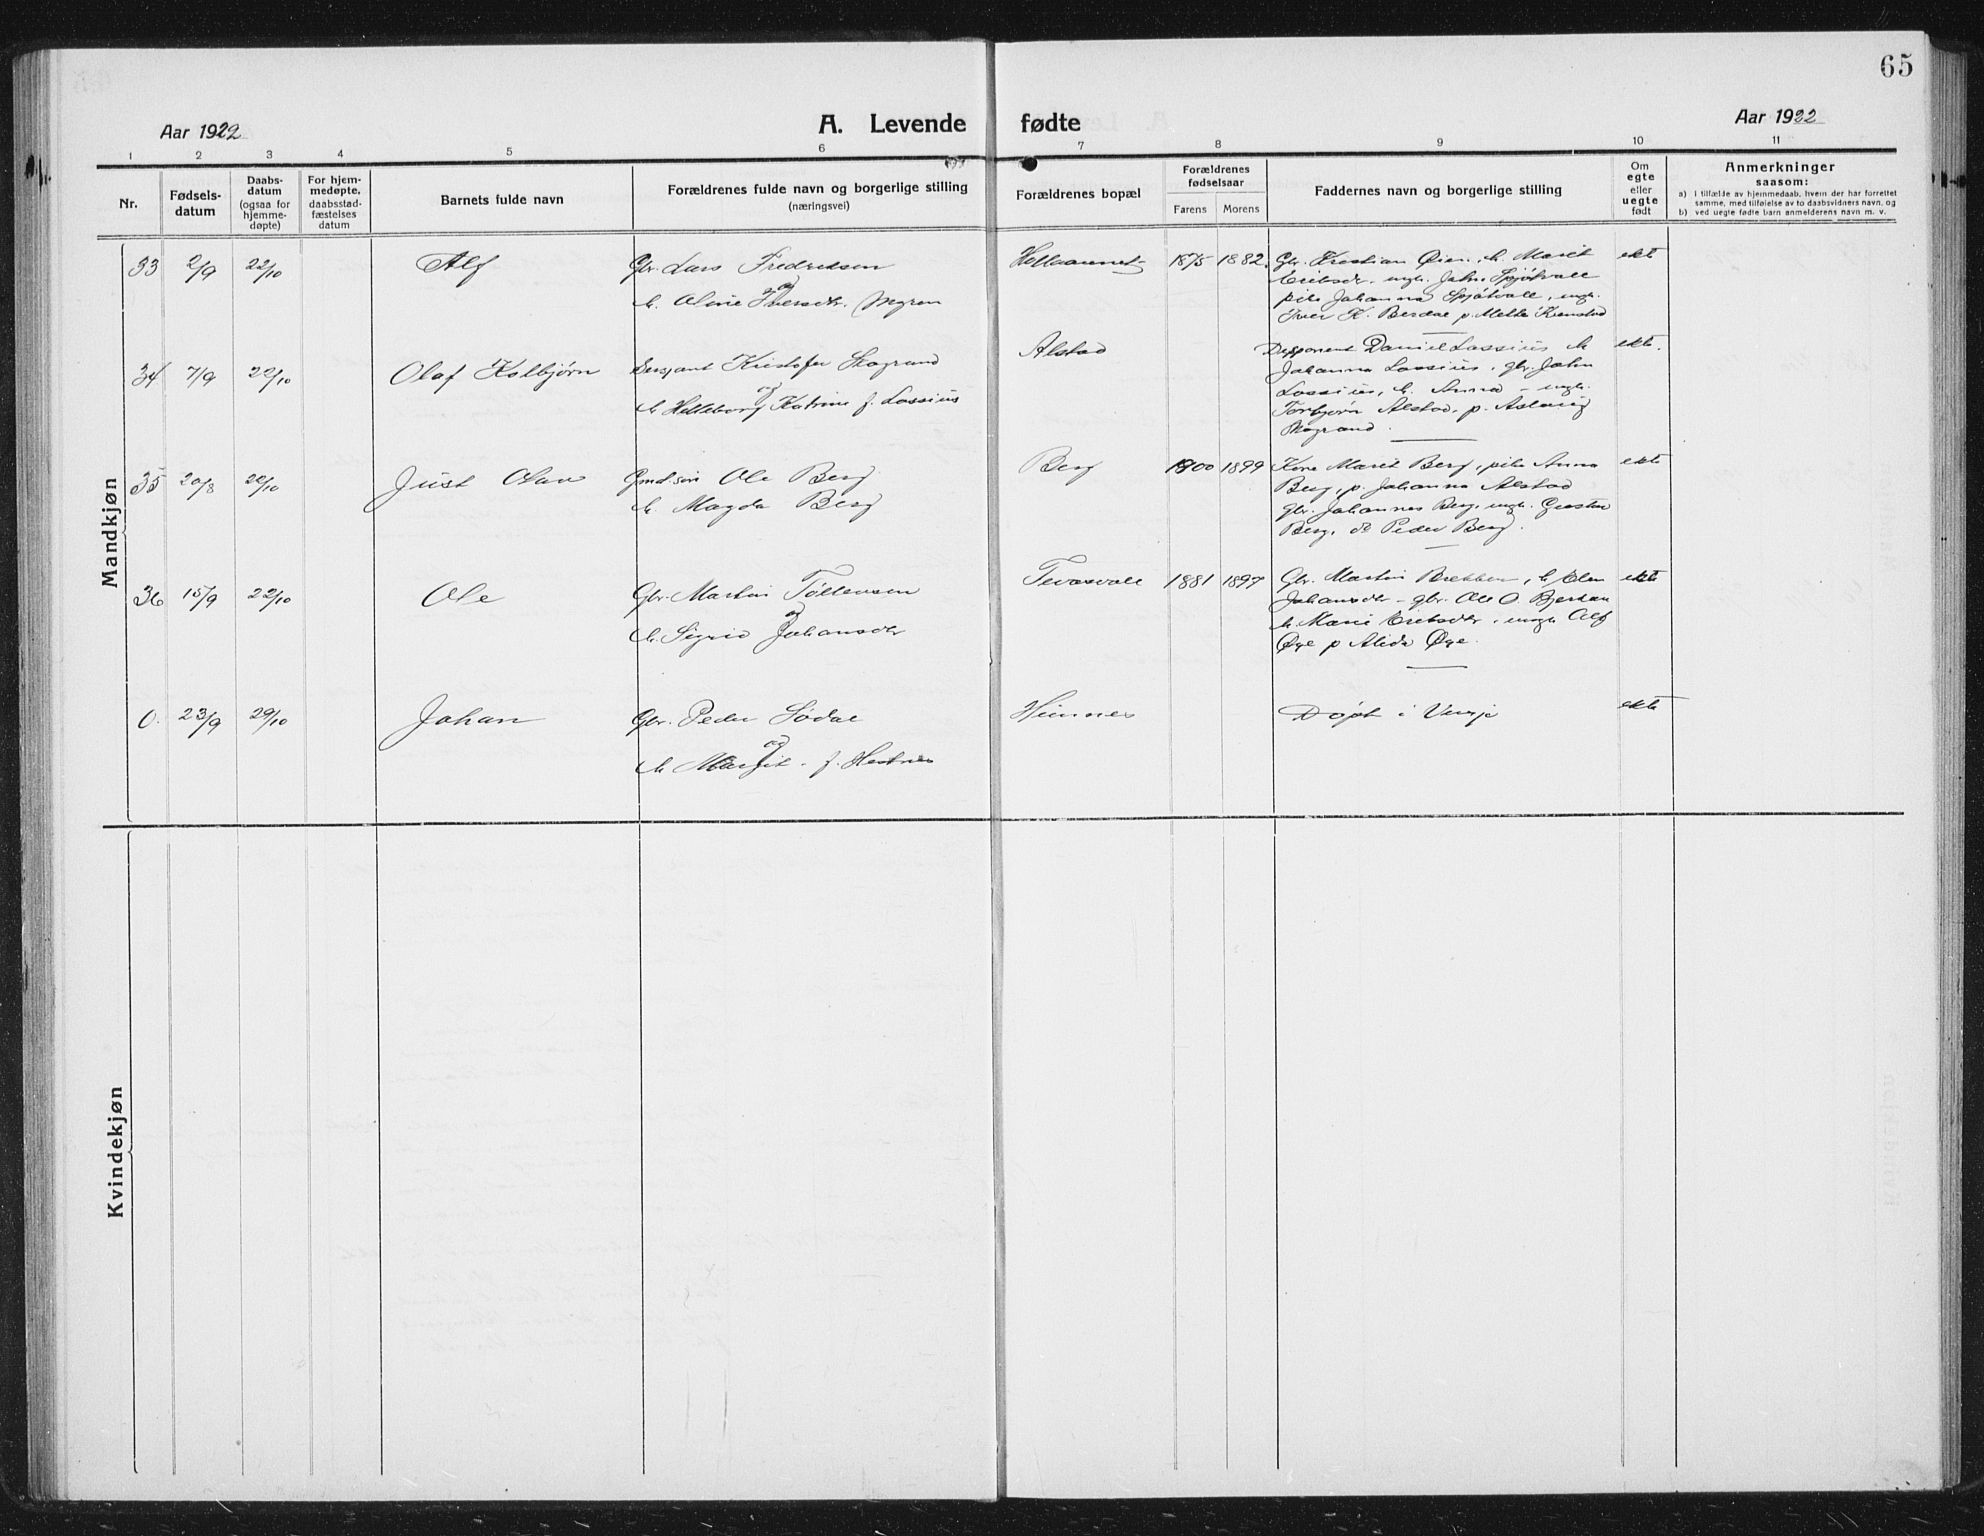 65
Aar 1922
A. Levende fødte
Aar 1922
1 2 3 4 5 6 7 8 9 10 11
Nr.
Fødsels-
datum
Daabs-
datum
(ogsaa for
hjemme-
døpte)
For hjem-
medøpte,
daabsstad-
fæstelses
datum
Barnets fulde navn
Forældrenes fulde navn og borgerlige stilling
(næringsvei)
Forældrenes bopæl
Forældrenes
fødselsaar
Farens Morens
Faddernes navn og borgerlige stilling
Om
egte
eller
uegte
født
Anmerkninger
saasom:
a) i tilfælde av hjemmedaab, hvem der har forrettet
samme, med tilføielse av to daabsvidners navn, og
b) ved uegte fødte barn anmelderens navn m. v.
Mandkjøn
33 2/9 22/10 Alf
Gbr. Lars Fredriksen
og
h. Oline Iversdtr.
1875 1882
Gbr. Kristian Øien, h. Marit
Eriksdr. ungk. John Spjøtvold
pike Johanna Spjøtvold, ungk.
Iver K. Berdal p. Mette
ekte
34 7/9 22/10 Olaf Kolbjørn
Sersjant Kristofer Skogrand
og
h. Helleborg Katrine f. Lossius
Alstad
Disponent Daniel Lossius h.
Johanna Lossius, gbr. John
Lossius, h. Anna - ungk.
Torbjørn Alstad, p. Aslaug
Skogrand.
ekte.
35 20/8 22/10 Just Olav
Gmd.søn Ole Berg
h. Magda Berg
Berg
1900 1899
Kone Marit Berg, pike Anna
Berg, p. Johanna Alstad
gbr. Johannes Berg, ungk. Gustav
Berg, do Peder Berg.
ekte
36 15/9 22/10 Ole
Gbr. Martin Tøllevsen
og
h. Sigrid Johansdtr
1881 1897
Gbr. Martin Brekken, h. Elen
Johansdtr - gbr. Ole O.
h. Marie Eriksdtr, ungk Alf
Øye p Alida Øye.
ekte
0. 23/9 29/10 Johan
Gbr. Peder Sødal
og
h. Margit - f. Hestnes
Heimnes
Døpt i Vinje
ekte
Kvindekjøn